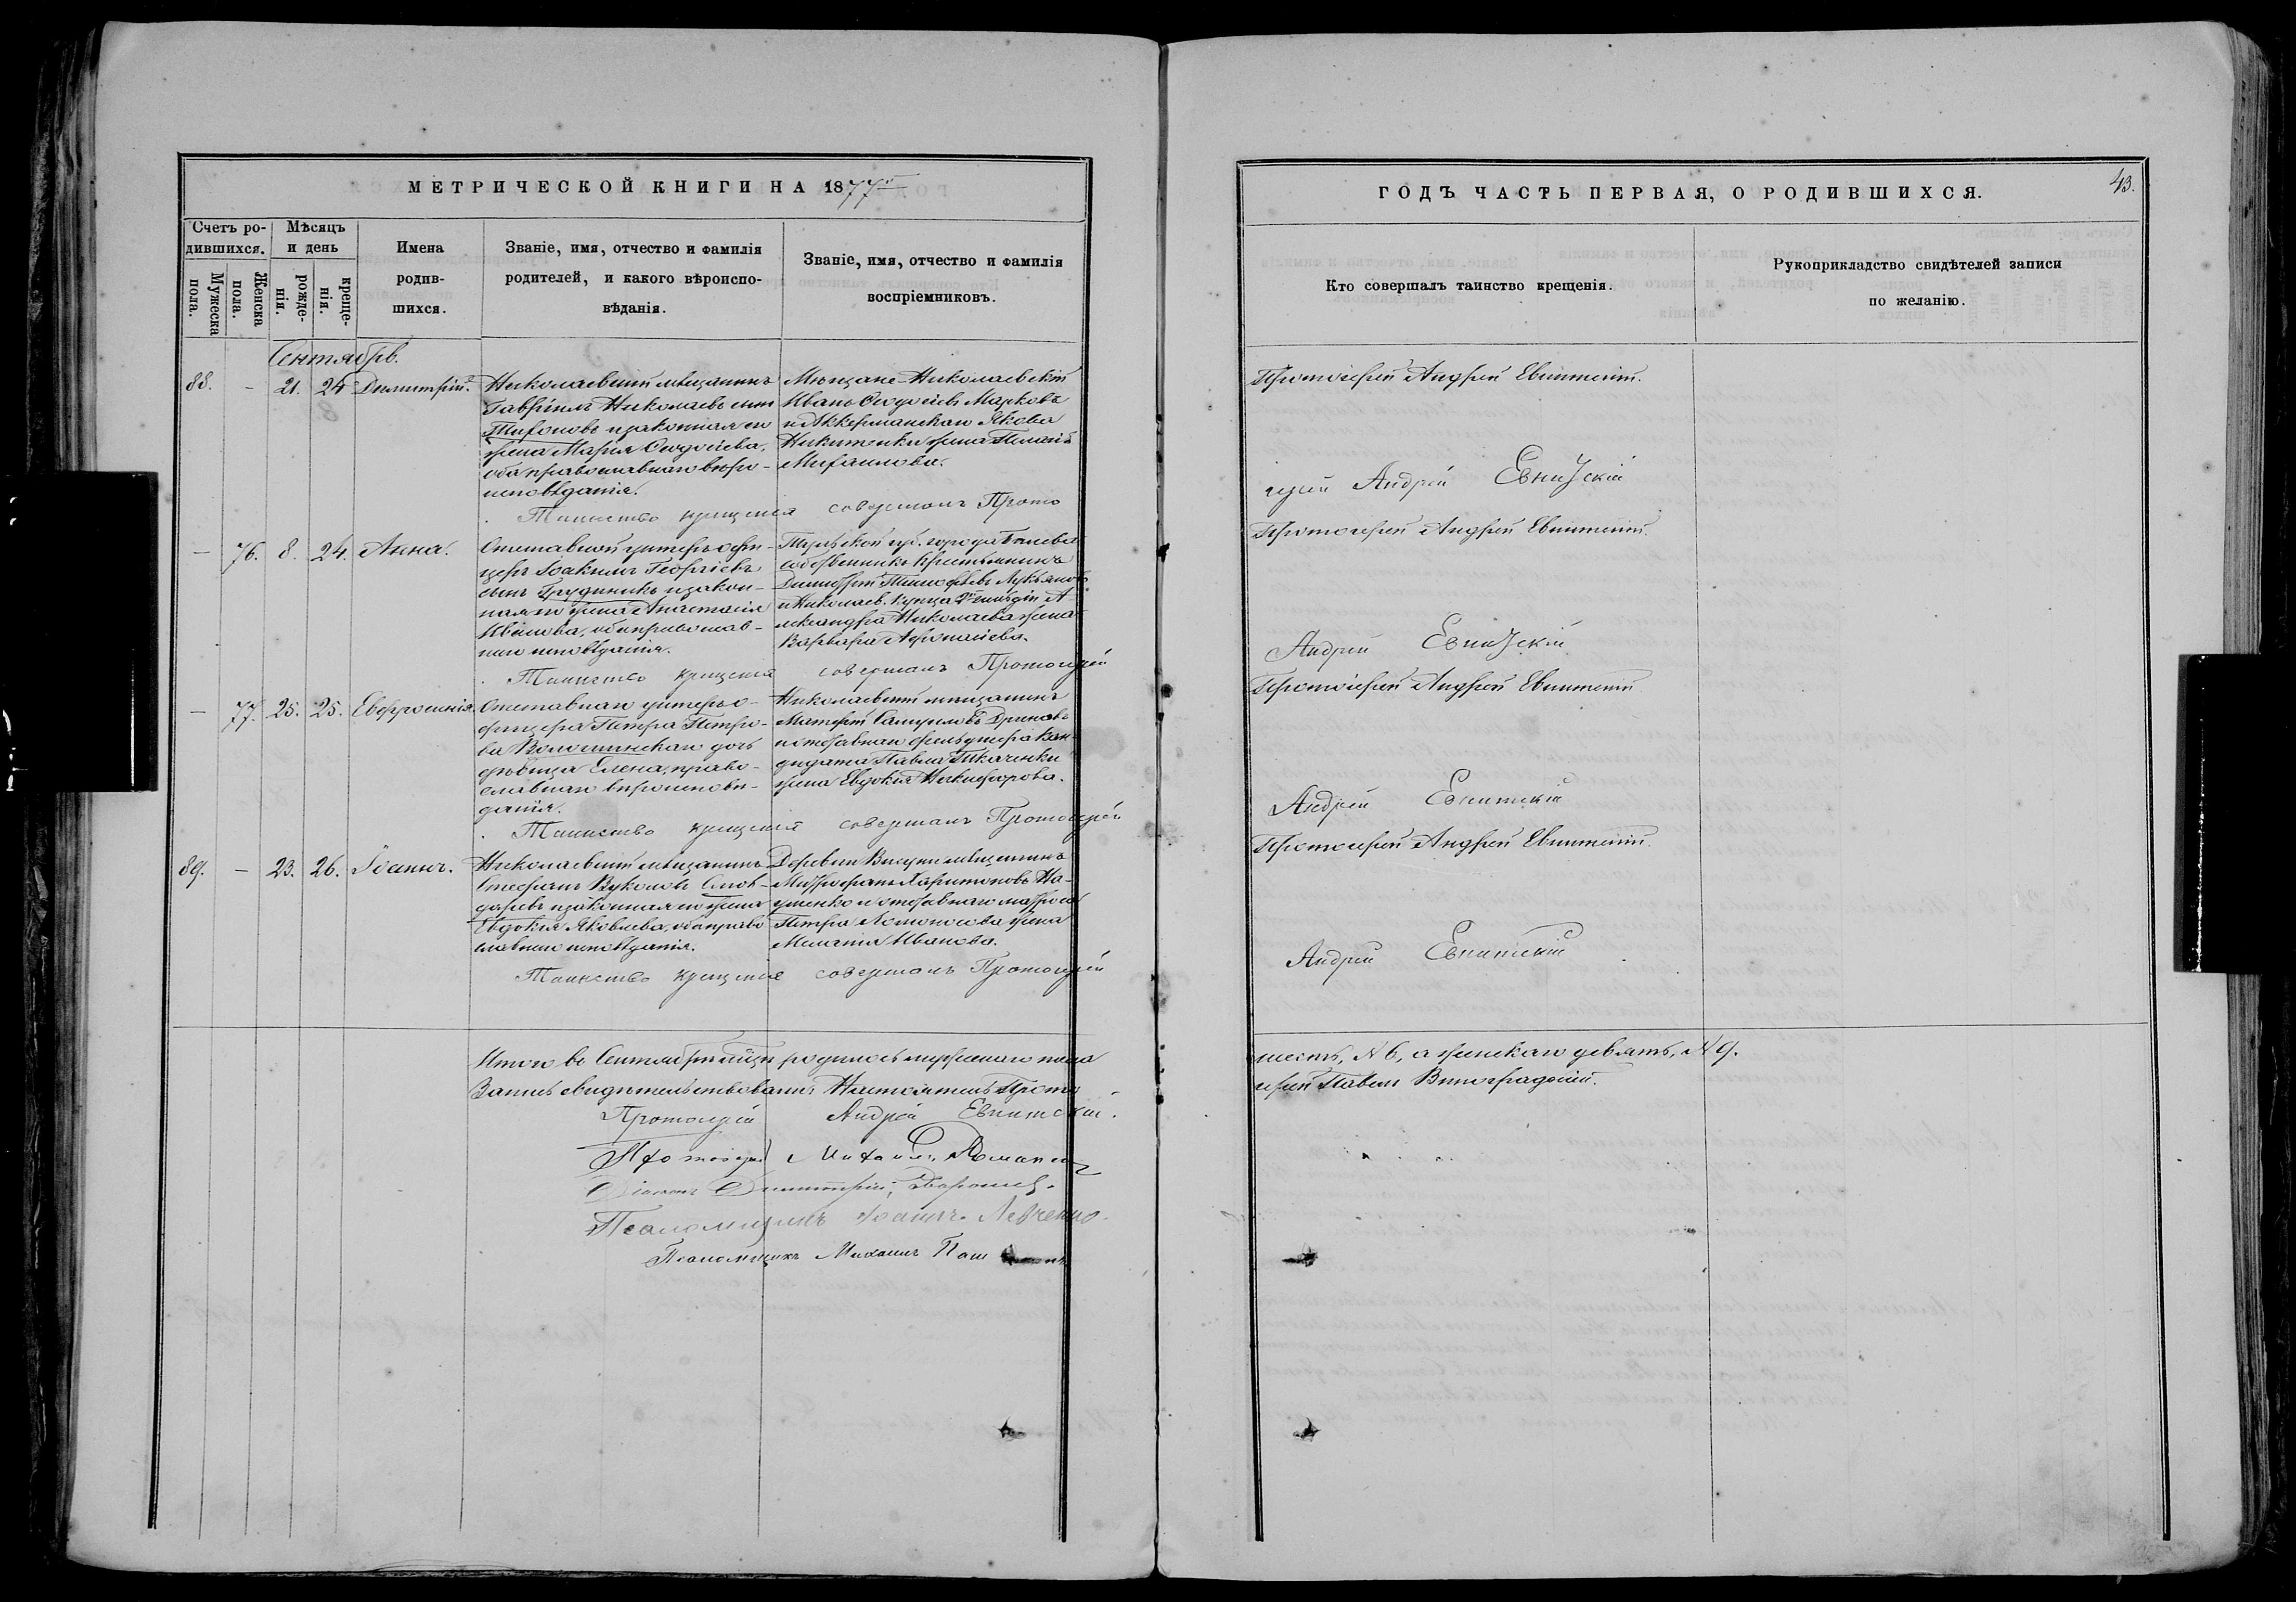 МЕТРИЧЕСКОЙ КНИГИ НА 1877й
Счетъ ро-
дившихся.
Мѣсяцъ
и день
Мужеска
пола.
Женска
пола.
рожде-
нія.
креще-
нія.
Имена
родив-
шихся.
Званіе, имя, отчество и фамилія
родителей, и какого вѣроиспо-
вѣданія.
Званіе, имя, отчество и фамилія
воспріемниковъ.
Сентябрь.
88. – 21. 24 Димитрій.
Николаевскій мѣщанинъ
Гавріилъ Николаевъ сынъ
Тифоновъ и законная его
жена Марія Ѳеодосіева,
оба православнаго вѣро-
исповѣданія.
Мѣщане - Николаевскій
Иванъ Ѳеодосіевъ Марковъ
и Аккерманская Якова
Никитенки жена
Михаилова.
Таинство крещенія совершалъ Прото
– 76. 8. 24. Анна.
Отставной унтеръ-офи-
церъ Іоакимъ Георгіевъ
сынъ Грудининъ и закон-
ная его жена Анастасія
оба православ-
наго исповѣданія.
Тульской губ. города Бѣлева
собственникъ крестьянинъ
Димитрій Тимофѣевъ Лукьяновъ
и Николаев. купца 2й гильдіи А-
лександра Николаева жена
Варвара Аѳонасіева.
Таинство крещенія совершалъ Протоіерей
– 77. 25. 25. Евфросинія.
Отставнаго унтеръ-о-
фицера Петра Петро-
ва Волошинскаго дочь
дѣвица Елена, право-
славнаго вѣроисповѣ-
данія.
Николаевскій мѣщанинъ
Матѳей Самуиловъ
и отставнаго фельдшера кан-
дидата Павла Ткаченки
жена Евдокія Никифорова.
Таинство крещенія совершалъ Протоіерей
89. – 23. 26. Іоаннъ.
Николаевскій мѣщанинъ
Стефанъ Вуколовъ
и законная его жена
Евдокія Яковлева, оба право
славнаго исповѣданія.
Деревни мѣщанинъ
Митрофанъ Харитоновъ На-
уменко и отставнаго матроса
Петра Ломоносова жена
Меланія Иванова.
Таинство крещенія совершалъ Протоіерей
Итого въ Сентябрѣ мѣсяцѣ родилось мужескаго пола
Запись свидѣтельствовалъ Настоятель Прото
Протоіерей Андрей Евнитскій.
Протоіерей Михаилъ Романенко
Діаконъ Димитрій
Псаломщикъ Іоаннъ Левченко.
Псаломщикъ Михаилъ
ГОДЪ ЧАСТЬ ПЕРВАЯ, О РОДИВШИХСЯ.
43.
Кто совершалъ таинство крещенія.
Рукоприкладство свидѣтелей записи
по желанію.
Протоіерей Андрей Евнитскій.
іерей Андрей Евнитскій
Протоіерей Андрей Евнитскій.
Андрей Евнитскій
Протоіерей Андрей Евнитскій
Андрей Евнитскій
Протоіерей Андрей Евнитскій.
Андрей Евнитскій
шесть, № 6, а женскаго девять, № 9.
іерей Павелъ Виноградскій.